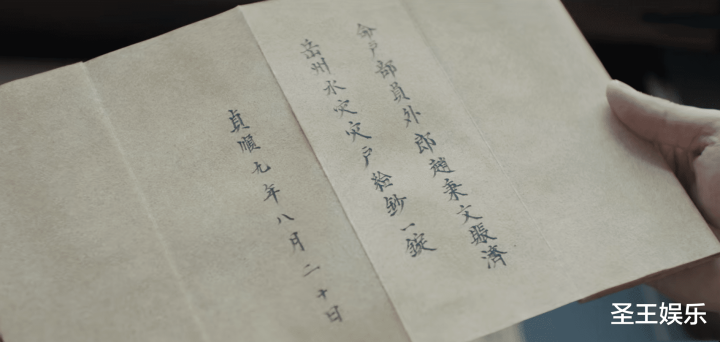 命戸部員外郎趙秉文賑濟
岳州水灾灾戸給鈔一錠
貞順九年八月二十日
圣王娱乐